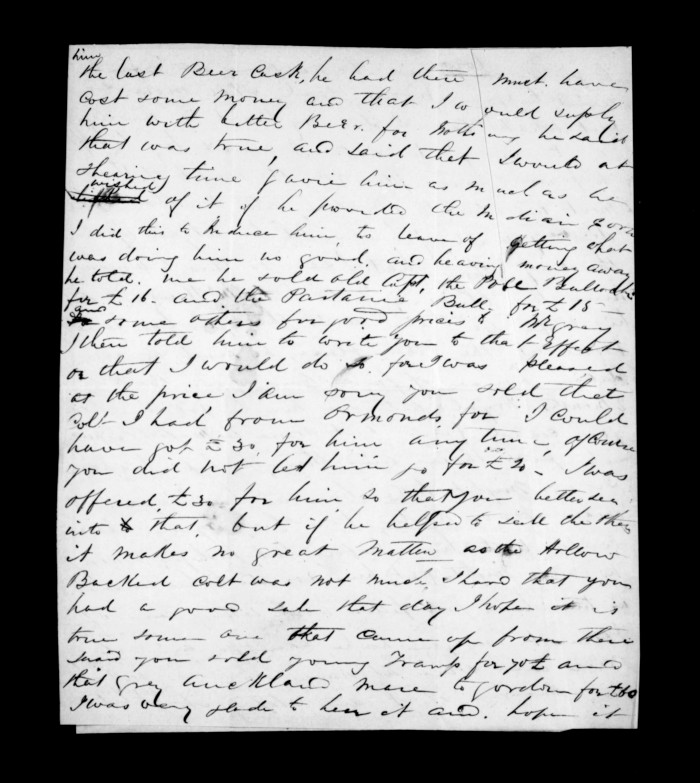 him
the last Beer Cask, he had there must have
cost some money and that I would supply
him with better Beer for nothing he said
that was true, and said that I would at
shearing time gavie him as much as he
wished of it if he provided the
I did this to Reduce him, to leave of getting that
was doing him no good. and heaving money away
he told me he sold old the Pole Bullocks
for £16. and the Bull for £15 —
and some others for good prices to McGray
I then told him to write you to that Effect
or that I would do so. for I was pleased
at the price I am sorry you sold that
Colt I had from Ormonds for I could
have got £30, for him any time, of Course
you did not let him go for £20 - I was
offered £30 for him so that you better see
into that, but if he helped to sell the others
it makes no great matter as the Hollow
Backed Colt was not much I hear that you
had a good sale that day I hope it is
true some one that came up from there
said you sold young Tramp for 70£ and
that grey Auckland mare to Gordon for £60
I was very glade to hear it and. hope it